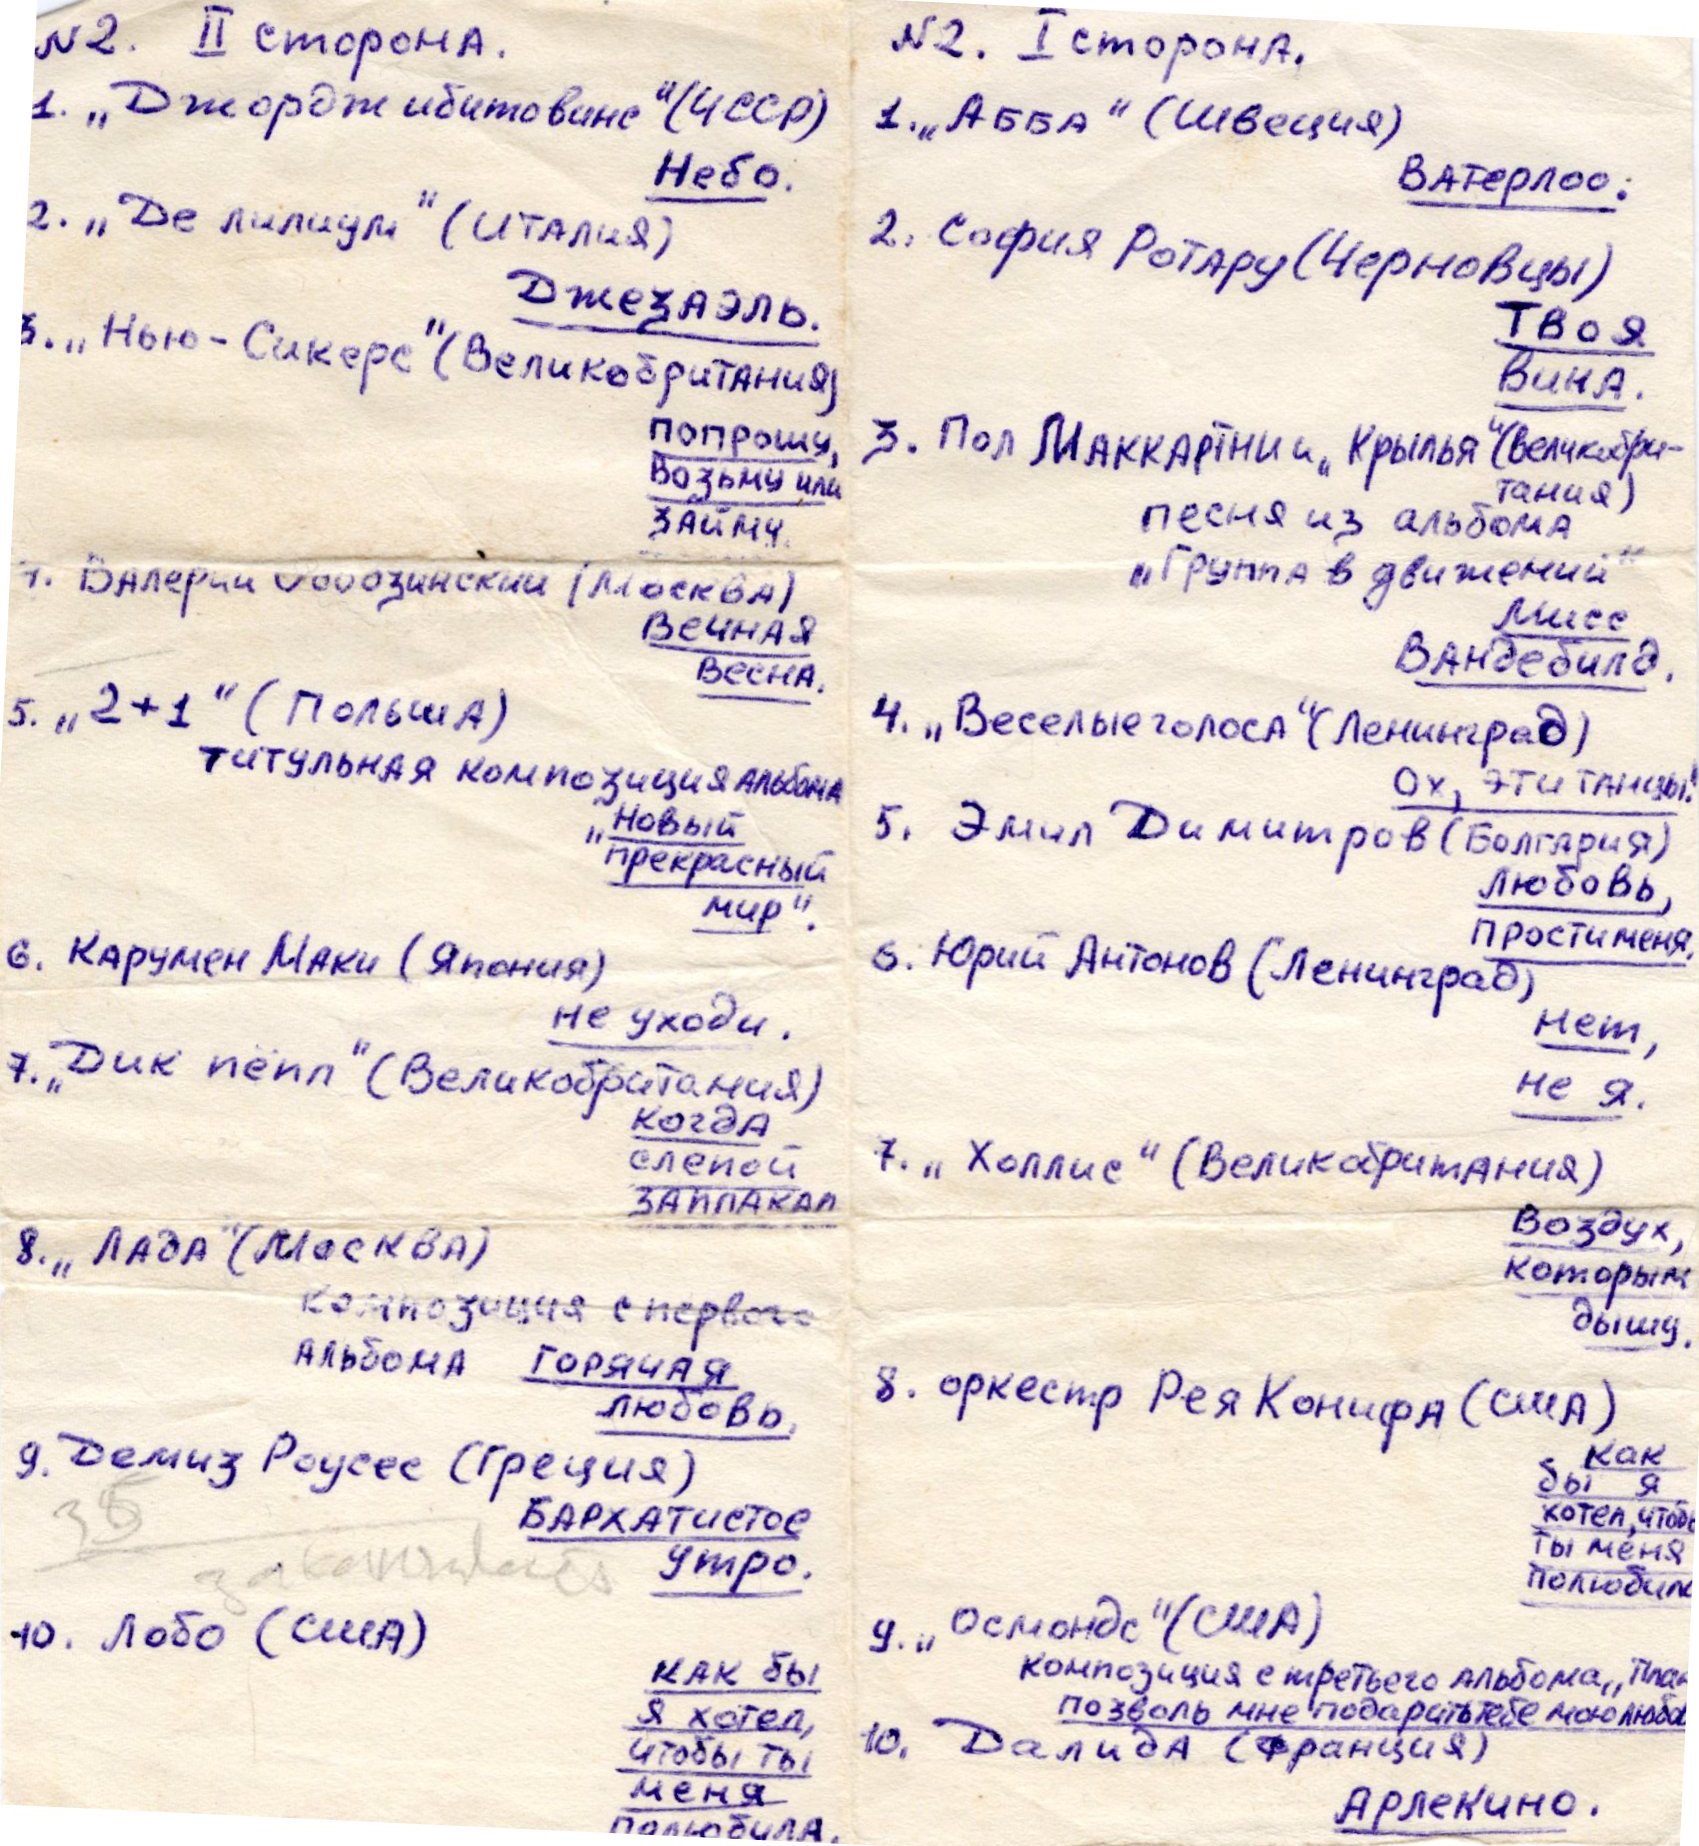 N2. II сторона.
1. „Джордж ибитовинс" (ЧССР)
Небо.
2. „Де лилиум" (Италия)
Джезаэль.
3. „Нью-Сикерс" (Великобритания)
попрошу,
возьму или
займу.
Валерий Ободзинский (Москва)
Вечная
весна.
5. „2+1" (Польша)
титульная композиция альбома
„Новый
прекрасный
мир".
6. Карумен Маки (Япония)
не уходи.
7. „Дик пёпл" (Великобритания)
когда
слепой
заплакал
8. „Лада" (Москва)
композиция с первого
альбома горячая
любовь.
9. Демиз Роусес (Греция)
Бархатистое
утро.
35
10. Лобо (США)
как бы
я хотел,
чтобы ты
меня
полюбила.
N2. I сторона.
1. „Абба" (Швеция)
Ватерлоо.
2. София Ротару (Черновцы)
Твоя
вина.
3. Пол Маккартни и „Крылья" (Великобри-
тания)
песня из альбома
„Группа в движений"
Мисс
Вандебилд.
4. „Веселые голоса" (Ленинград)
Ох, эти танцы!
5. Эмил Димитров (Болгария)
Любовь,
прости меня.
6. Юрий Антонов (Ленинград)
нет,
не я.
7. „Холлис" (Великобритания)
Воздух,
которым
дышу.
8. оркестр Рея Конифа (США)
как
бы я
хотел, чтобы
ты меня
полюбила
9. „Осмондс" (США)
композиция с третьего альбома „План
позволь мне подарить тебе мою любов
10. Далида (Франция)
Арлекино.